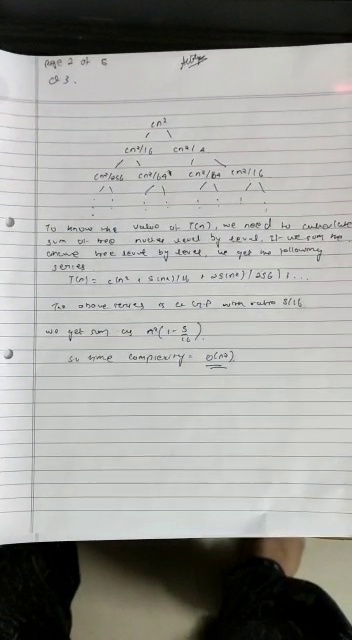 Page 2 of 5
Q 3.
cn²
cn²/16 cn²/4
cn²/256 cn²/64 cn²/64 cn²/16
To know the value of T(n), we need to calculate
sum of tree nodes level by level. If we sum the
above tree level by level, we get the following
series
T(n) = c(n² + 5(n²)/16 + 25(n²)/256) + ...
The above series is a G.P with ratio 5/16
we get sum as n²(1 - 5/16).
so time complexity = O(n²)